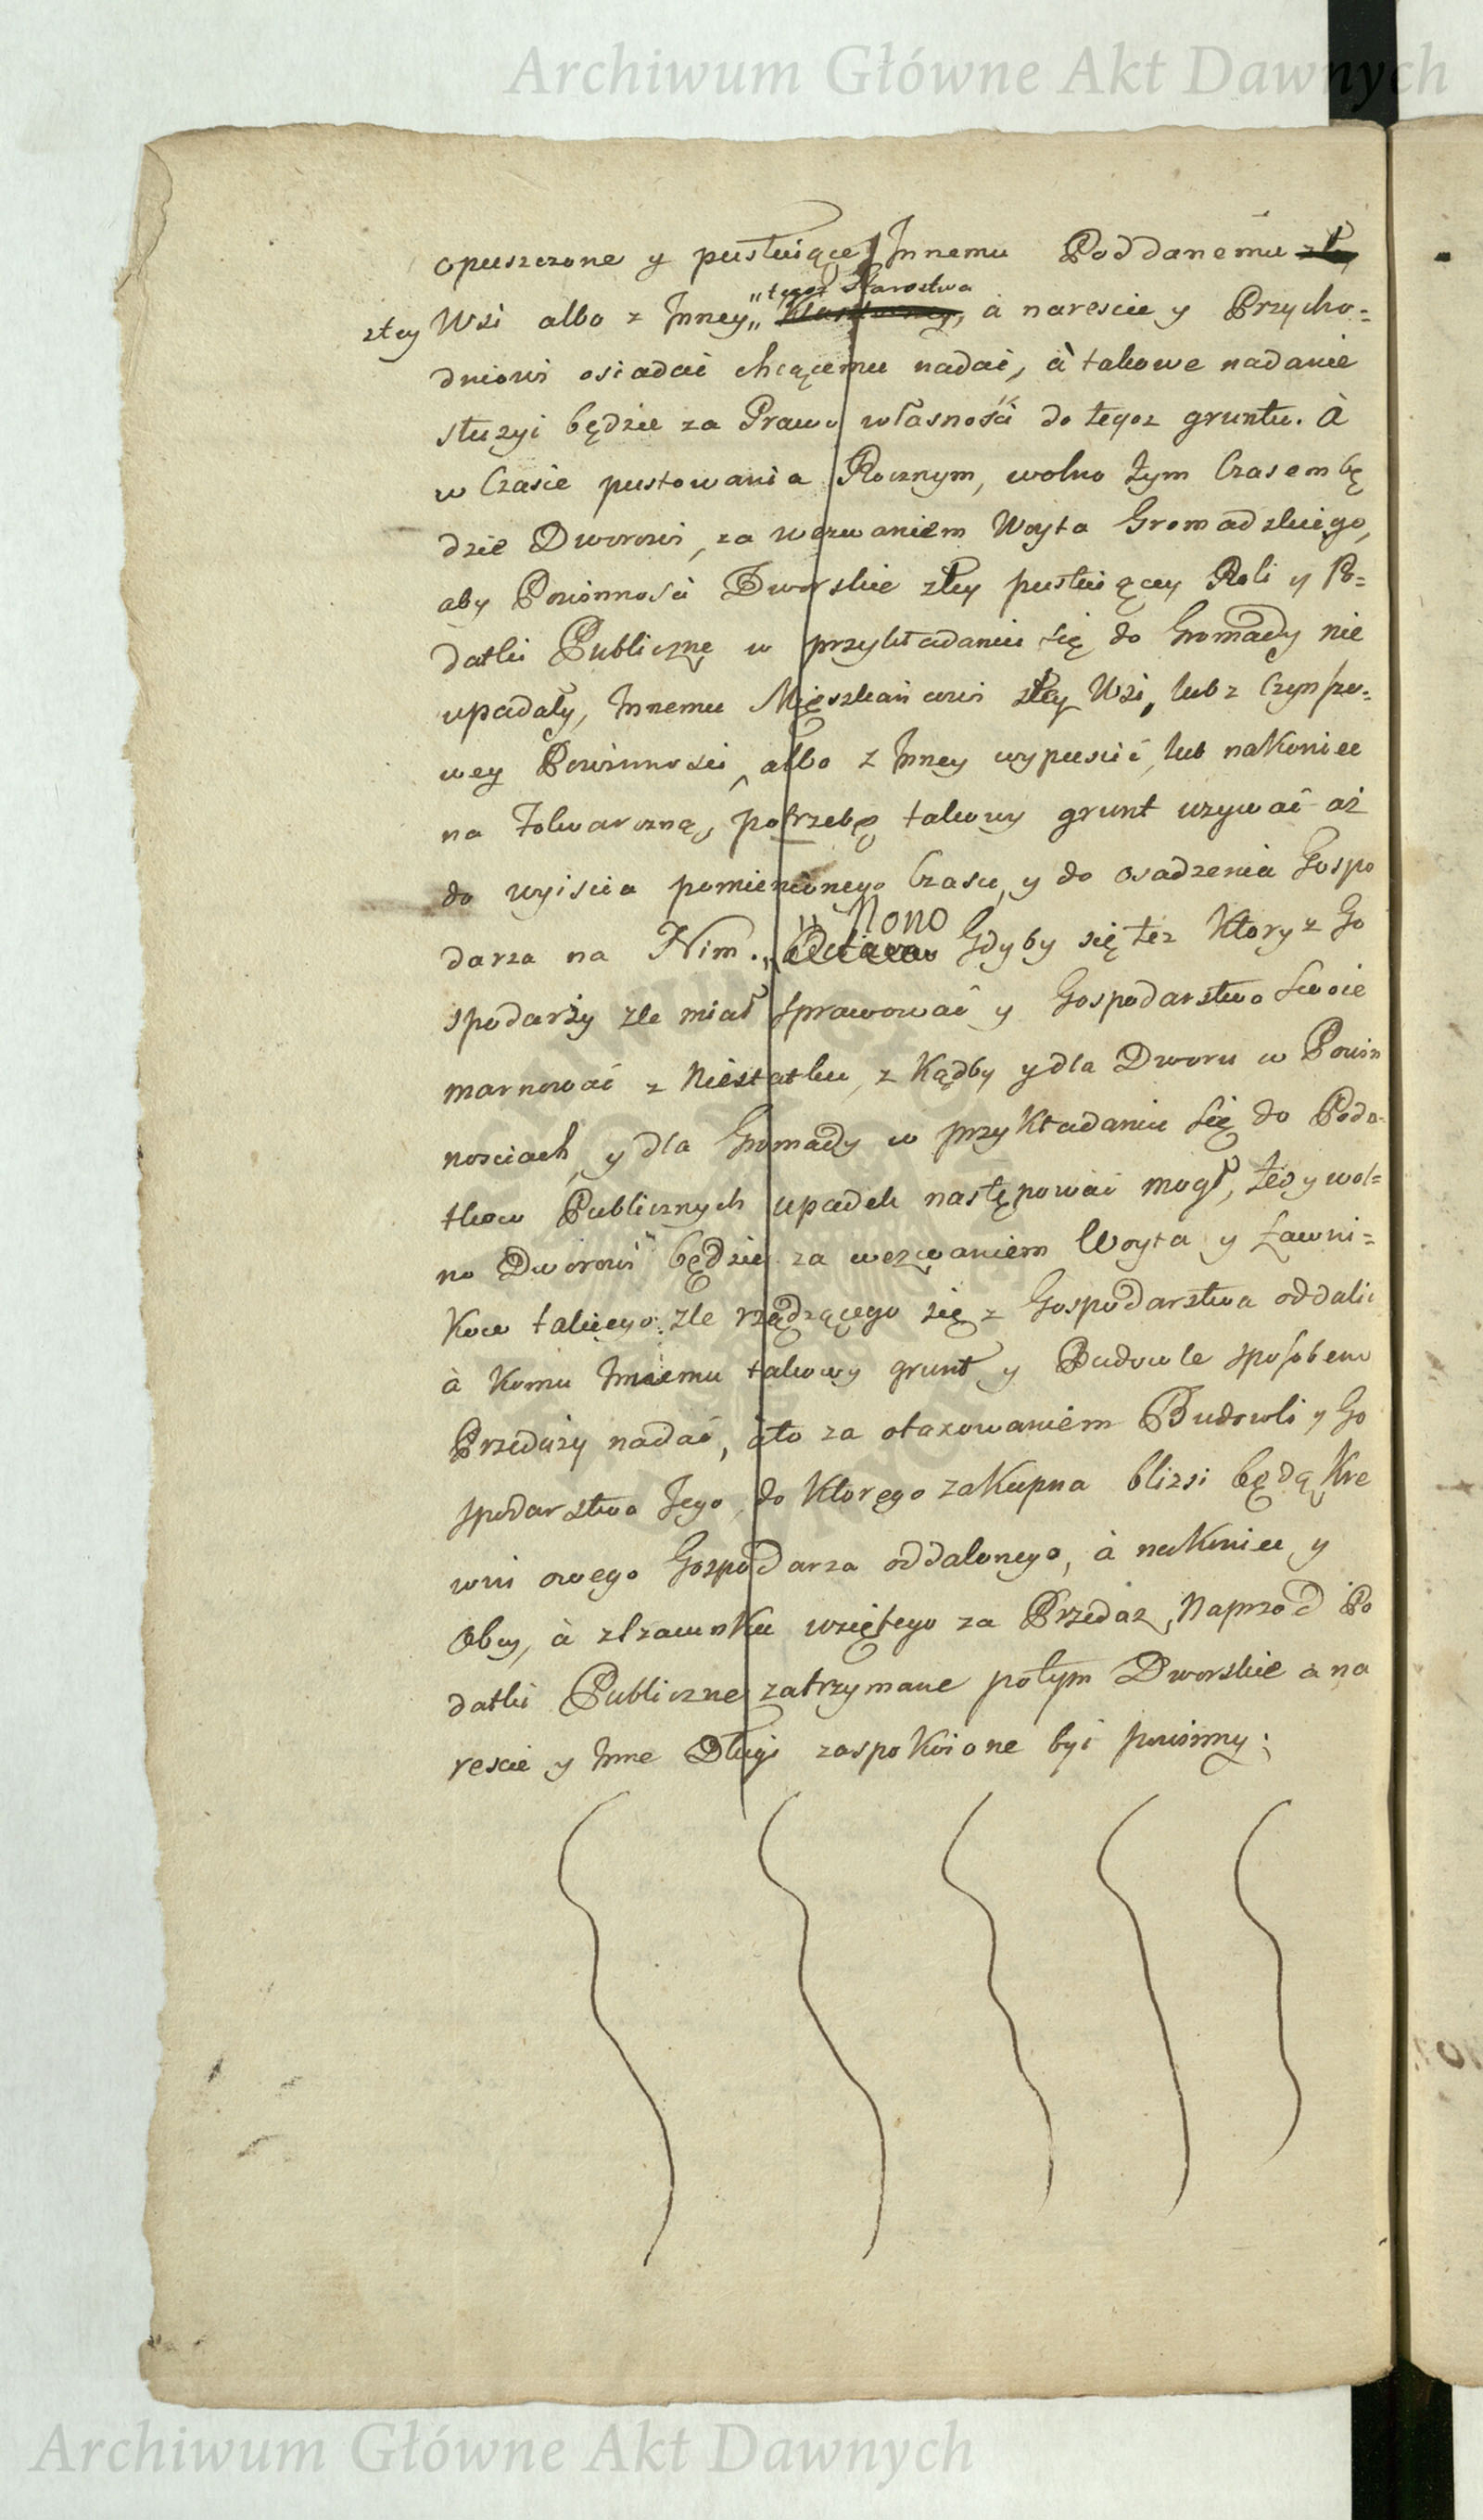 Archiwum Główne Akt Dawnych
opuszczone y pustuiące Jnnemu Poddanemu ztey
tegoz Starostwa
ztey Wsi albo z Jnney, à nareście y Przycho=
dniowi osiadać chcącemu nadać, à takowe nadanie
służyć będzie za Prawo własności do tegoz gruntu. à
w Czasie pustowania Rocznym, wolno tym Czasem bę
dzie Dworowi, za wezwaniem Woyta Gromadzkiego,
aby Powinności Dworskie ztey pustuiącey Roli y Po=
datki Publiczne w przykładaniu się do Gromady nie
upadały, Jnnemu Mięszkańcowi ztey Wsi, lub z Czynszo=
wey Powinności, albo z Jnney wypuścić, lub nakoniec
na Folwarczną, potrzebę takowy grunt uzywać aż
do wyiscia pomienionego Czasu, y do osadzenia Gospo
Nono
darza na Nim. Octavo Gdyby się tez Ktory z Go
spodarży zle miał sprawować y Gospodarstwo swoie
marnować z Niestatku, z Kądby y dla Dworu w Powin
nosciach, y dla Gromady w przykładaniu się do Poda=
tkow Publicznych upadek następować mogł, tedy wol=
no Dworowi będzie za wezwaniem Woyta y Ławni=
Kow takiego zle rządzącego się z Gospodarstwa oddalić
à Komu Jnnemu takowy grunt y Budowle sposobem
Przedaży nadać, àto za otaxowaniem Budowli y Go
spodarstwa Jego, do Ktorego zaKupna blizsi będą Kre
wni owego Gospodarza oddalonego, à naKoniec y
Obcy, à zszacunKu wziętego za Przedaz, Naprzod Po
datki Publiczne zatrzymane potym Dworskie à na
rescie y Jnne Długi zaspoKoione być powinny;
Archiwum Główne Akt Dawnych